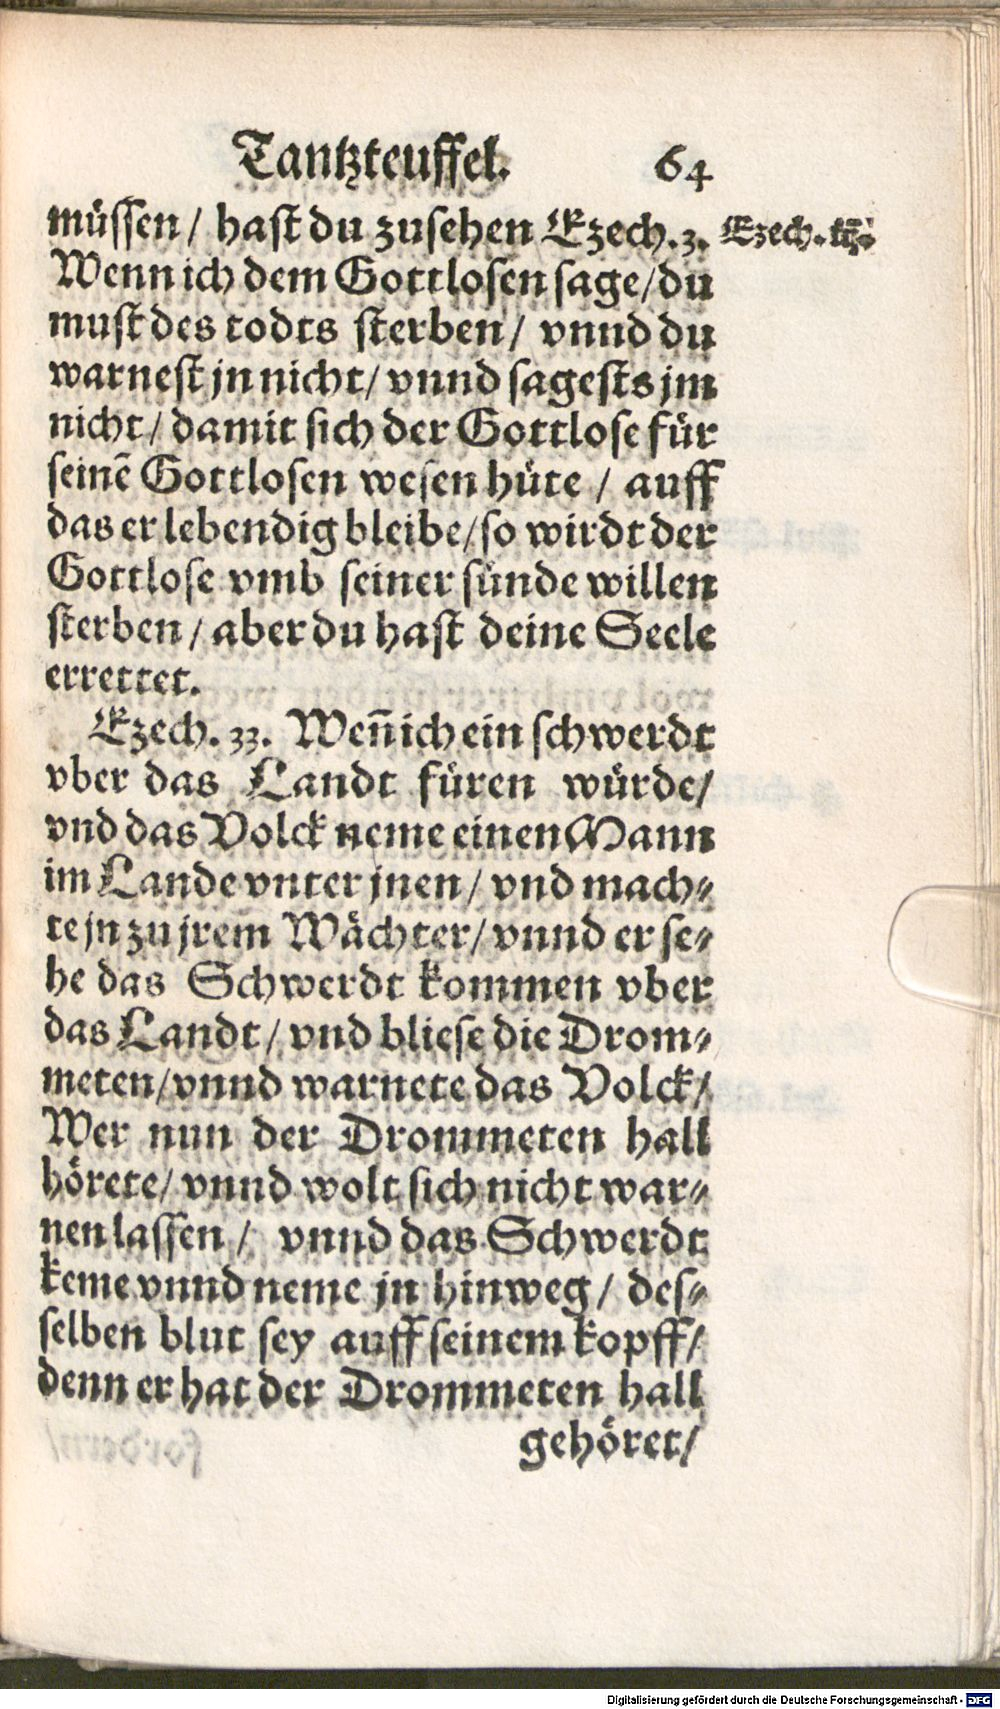 Tantzteuffel. 64
müssen / hast du zusehen Ezech. 3. Ezech.
Wenn ich dem Gottlosen sage/ du
must des todts sterben / vnnd du
warnest jn nicht/ vnnd sagests jm
nicht / damit sich der Gottlose für
seinē Gottlosen wesen hüte / auff
das er lebendig bleibe/ so wirdt der
Gottlose vmb seiner sünde willen
sterben / aber du hast deine Seele
errettet.
Ezech. 33. Weñ ich ein schwerdt
vber das Landt füren würde/
vnd das Volck neme einen Mann
im Lande vnter jnen / vnd mach-
te jn zu jrem Wächter/ vnnd er se-
he das Schwerdt kommen vber
das Landt / vnd bliese die Drom-
meten/ vnnd warnete das Volck/
Wer nun der Drommeten hall
hörete/ vnnd wolt sich nicht war-
nen lassen / vnnd das Schwerdt
keme vnnd neme jn hinweg / des-
selben blut sey auff seinem kopff/
denn er hat der Drommeten hall
gehöret/
Digitalisierung gefördert durch die Deutsche Forschungsgemeinschaft - DFG